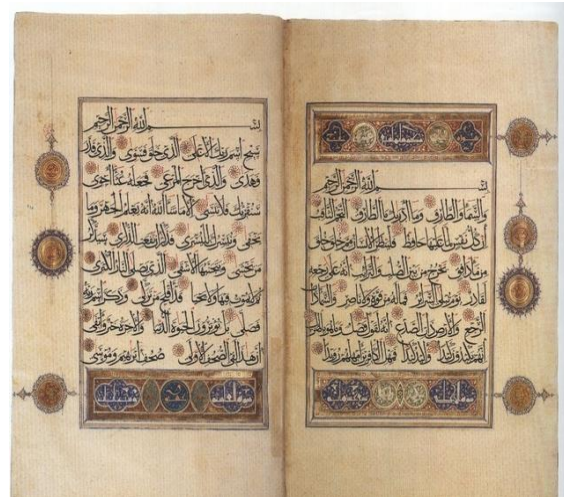 بسم الله الرحمن الرحيم
والسماء والطارق وما ادريك ما الطارق النجم الثاقب
ان كل نفس لما عليها حافظ فلينظر الانسان مم خلق خلق
من ماء دافق يخرج من بين الصلب والترائب انه على رجعه
لقادر يوم تبلى السرائر فما له من قوة ولا ناصر والسماء ذات
الرجع والارض ذات الصدع انه لقول فصل وما هو بالهزل
انهم يكيدون كيدا واكيد كيدا فمهل الكافرين امهلهم رويدا
بسم الله الرحمن الرحيم
سبح اسم ربك الاعلى الذي خلق فسوى والذي قدر
فهدى والذي اخرج المرعى فجعله غثاء احوى
سنقرئك فلا تنسى الا ما شاء الله انه يعلم الجهر وما
يخفى ونيسرك لليسرى فذكر ان نفعت الذكرى سيذكر
من يخشى ويتجنبها الاشقى الذي يصلى النار الكبرى
ثم لا يموت فيها ولا يحيى قد افلح من تزكى وذكر اسم ربه
فصلى بل تؤثرون الحيوة الدنيا والاخرة خير وابقى
ان هذا لفي الصحف الاولى صحف ابرهيم وموسى